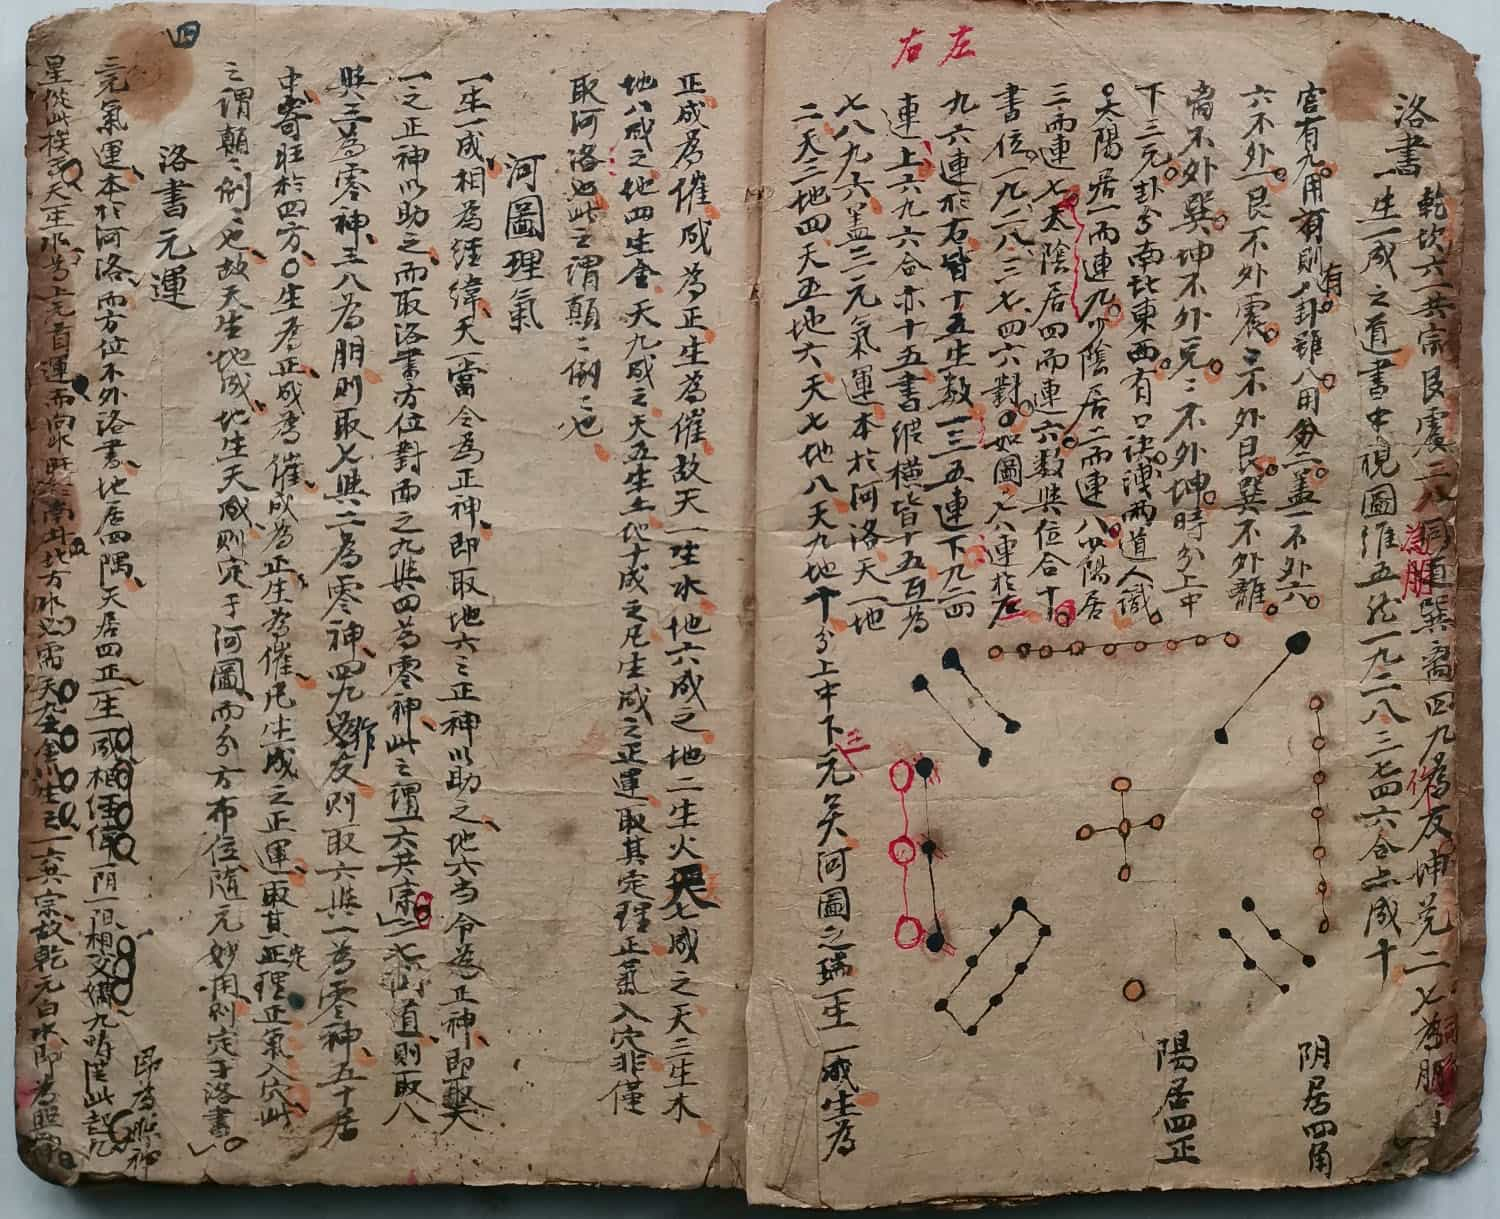 左
右
洛書
乾坎六一共宗艮震三八為朋巽離四九為友坤兌二七同道
一生一成之道書中視圖維五於一九二八三七四六合亦成十
官有九用有則八卦雖八用分二蓋一不外六
有
六不外一艮不外震三不外艮巽不外離
离不外巽坤不外兌二不外坤時分上中
下三元卦分南北東西有口訣洩兩道人識
太陽居一而連九少陰居二而連八少陽居
三而連七太陰居四而連六数與位合十
書位一九二八三七四六對如圖七八連於左
九六連於右皆十五生数一三五連下九二四
連上六九六合亦十五書縱橫皆十五互為
七八九六蓋三元氣運本於河洛天一地
二天三地四天五地六天七地八天九地十分上中下元矣河圖之瑞一生一成生為
三
阴居四角
陽居四正
正成為催成為正生為催故天一生水地六成之地二生火天七成之天三生木
地八成之地四生金天九成之天五生土地十成之凡生成之正運取其定理正氣入穴非僅
取河洛也此之謂顛二倒二也
河圖理氣
一生一成相為經緯天一當令為正神即取地六之正神以助之地六当令為正神即取天
一之正神以助之而取洛書方位對面之九與四為零神此之謂一六共宗二七同道則取八
與三為零神三八為朋則取七與二為零神四九為友則取六與一為零神五十居
作
中寄旺於四方生為正成為催成為正生為催凡生成之正運取其正理正氣入穴此
定
之謂顛二倒二也故天生地成地生天成則定于河圖而分方布位隨元妙用則定于洛書
洛書元運
即為照神
三元氣運本於河洛而方位不外洛書地居四隅天居四正一生一成相經緯一阴一陽相交媾九疇從此起九
星從此挨
四